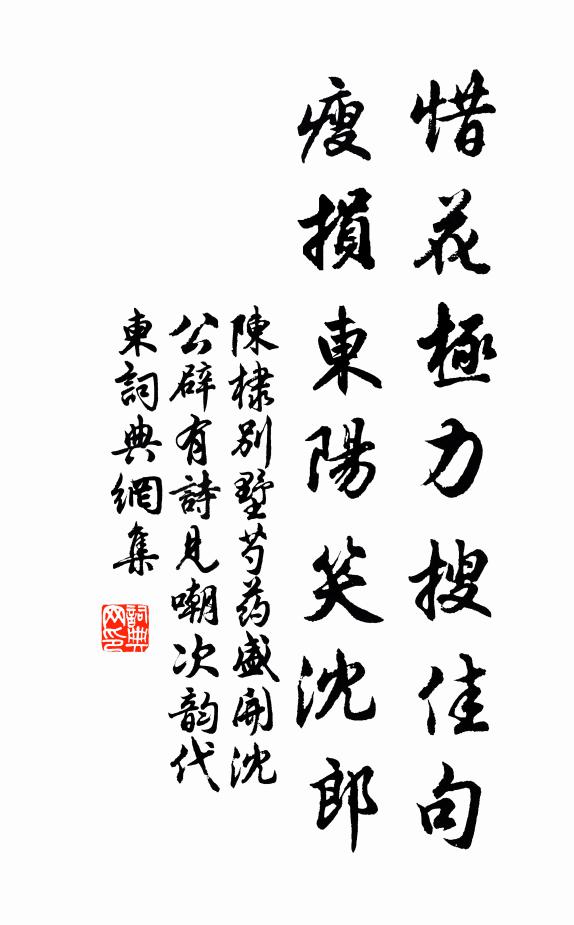 惜花極力搜佳句
瘦損東陽笑沈郎
陳棣別墅芍药盛開沈
公辟有詩見嘲次韵代
東詞典網集
詞典网印